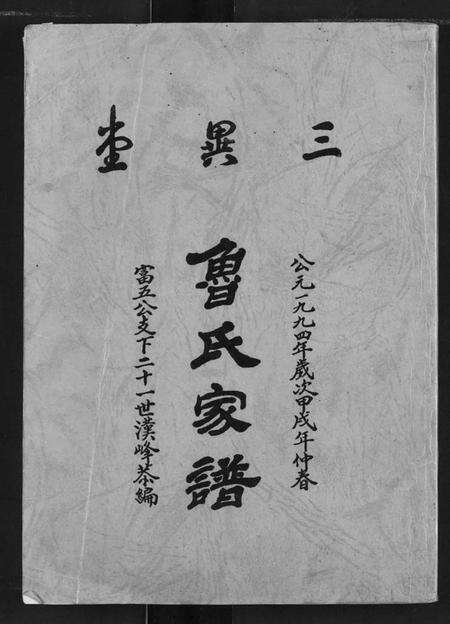 三異堂
公元一九九四年歲次甲戌年仲春
魯氏家譜
富五公支下二十一世漢峰恭編